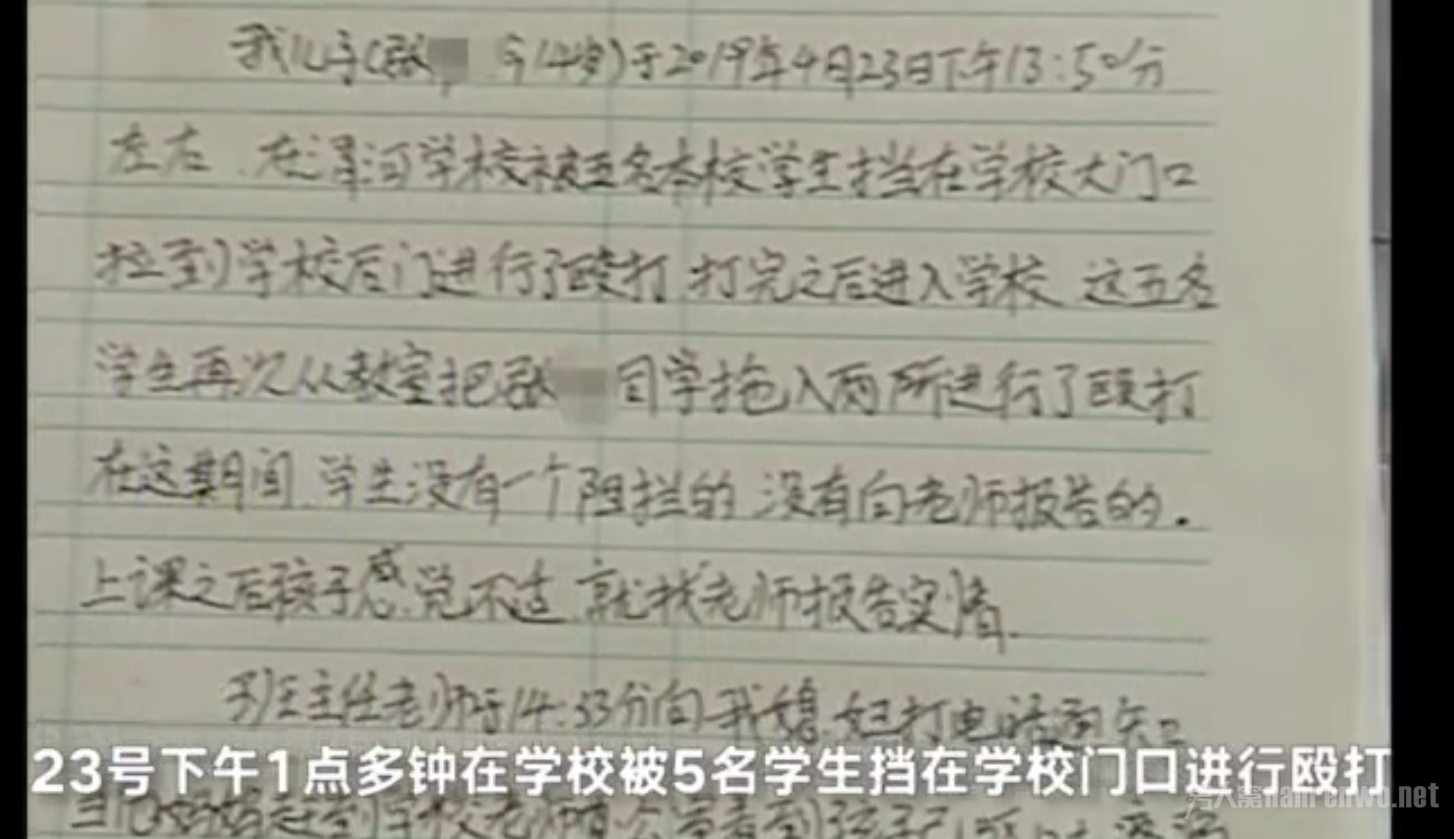 我儿子(殷 今14岁)于2019年4月23日下午13:50分
左右、在渭河学校被五名本校学生挡在学校大门口
拉到学校后门进行了殴打 打完之后进入学校 这五名
学生再次从教室把殷 同学拖入厕所进行了殴打
在这期间 学生没有一个阻拦的 没有向老师报告的.
上课之后孩子感觉不适 就找老师报告实情.
班主任老师于14:33分向我媳妇打电话
23号下午1点多钟在学校被5名学生挡在学校门口进行殴打
男人窝nanrenwo.net